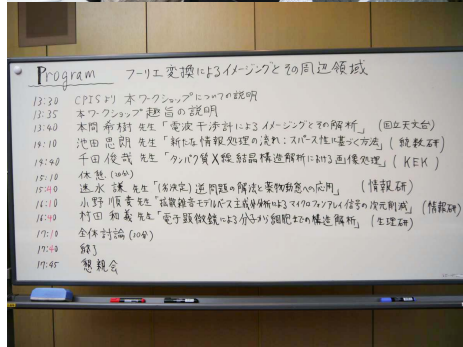 Program フーリエ変換によるイメージングとその周辺領域
13:30 CPISより 本ワークショップについての説明
13:35 本ワークショップ趣旨の説明
13:40 本間 希樹 先生「電波干渉計によるイメージングとその解析」(国立天文台)
14:10 池田 思朗 先生「新たな情報処理の流れ:スパース性に基づく方法」(統数研)
14:40 千田 俊哉 先生「タンパク質X線結晶構造解析における画像処理」(KEK)
15:10 休憩(30分)
15:40 速水 謙 先生「(劣決定)逆問題の解法と薬物動態への応用」(情報研)
16:10 小野 順貴 先生「拡散雑音モデルベース主成分分析によるマイクロフォンアレイ信号の次元削減」(情報研)
16:40 村田 和義 先生「電子顕微鏡による分子から細胞までの構造解析」(生理研)
17:10 全体討論(30分)
17:40 終了
17:45 懇親会